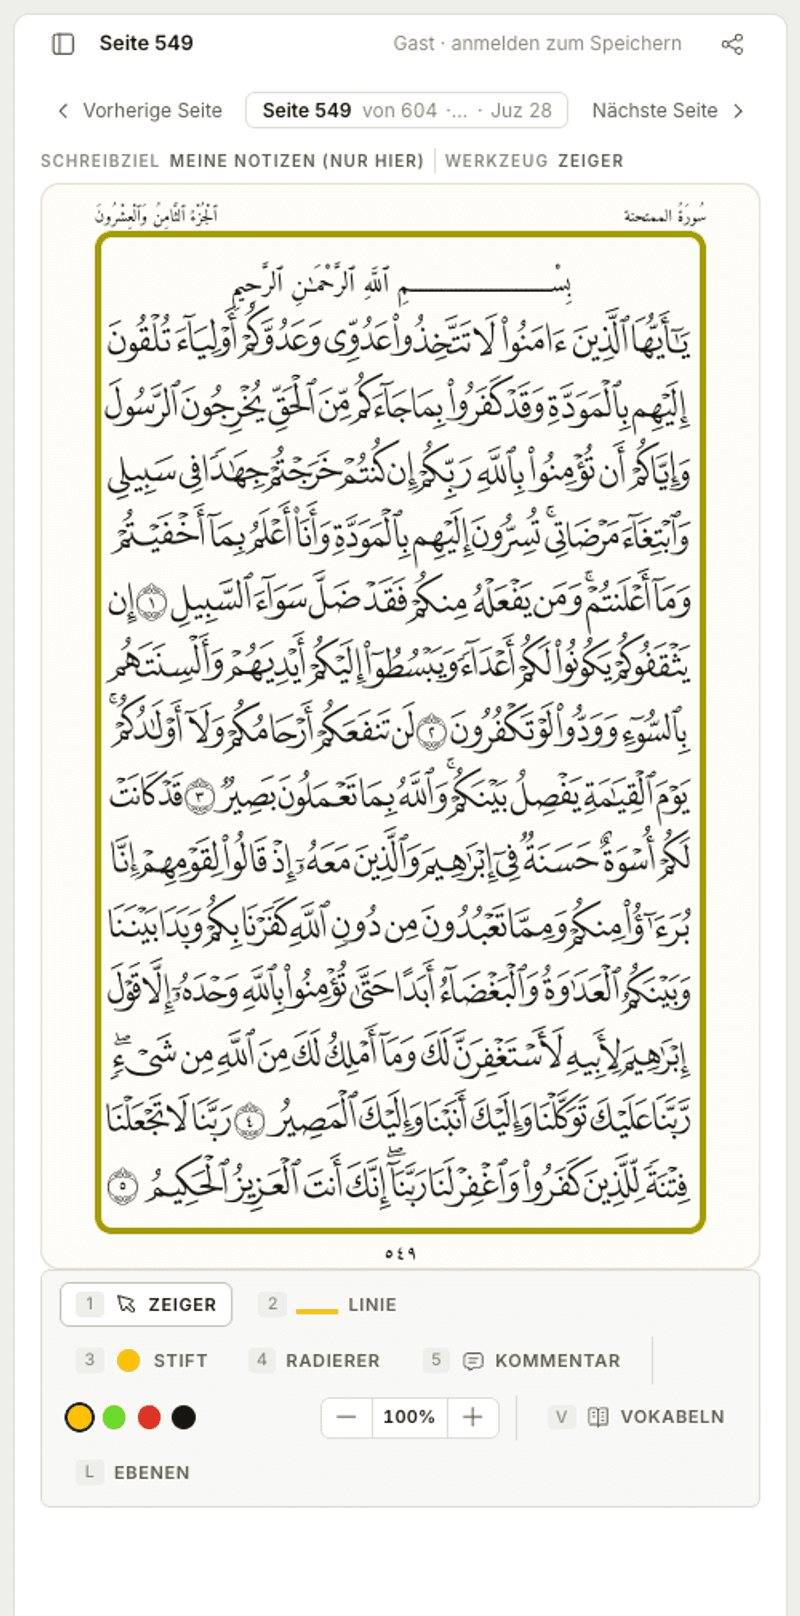 Seite 549
Gast · anmelden zum Speichern
Vorherige Seite
Seite 549 von 604 ·... · Juz 28
Nächste Seite
SCHREIBZIEL MEINE NOTIZEN (NUR HIER)
WERKZEUG ZEIGER
سُورَةُ الممتحنة
ٱلْجُزْءُ ٱلثَّامِنُ وَٱلْعِشْرُونَ
بِسْمِ ٱللَّهِ ٱلرَّحْمَٰنِ ٱلرَّحِيمِ
يَـٰٓأَيُّهَا ٱلَّذِينَ ءَامَنُوا۟ لَا تَتَّخِذُوا۟ عَدُوِّى وَعَدُوَّكُمْ أَوْلِيَآءَ تُلْقُونَ
إِلَيْهِم بِٱلْمَوَدَّةِ وَقَدْ كَفَرُوا۟ بِمَا جَآءَكُم مِّنَ ٱلْحَقِّ يُخْرِجُونَ ٱلرَّسُولَ
وَإِيَّاكُمْ أَن تُؤْمِنُوا۟ بِٱللَّهِ رَبِّكُمْ إِن كُنتُمْ خَرَجْتُمْ جِهَـٰدًا فِى سَبِيلِى
وَٱبْتِغَآءَ مَرْضَاتِى ۚ تُسِرُّونَ إِلَيْهِم بِٱلْمَوَدَّةِ وَأَنَا۠ أَعْلَمُ بِمَآ أَخْفَيْتُمْ
وَمَآ أَعْلَنتُمْ ۚ وَمَن يَفْعَلْهُ مِنكُمْ فَقَدْ ضَلَّ سَوَآءَ ٱلسَّبِيلِ ١ إِن
يَثْقَفُوكُمْ يَكُونُوا۟ لَكُمْ أَعْدَآءً وَيَبْسُطُوٓا۟ إِلَيْكُمْ أَيْدِيَهُمْ وَأَلْسِنَتَهُم
بِٱلسُّوٓءِ وَوَدُّوا۟ لَوْ تَكْفُرُونَ ٢ لَن تَنفَعَكُمْ أَرْحَامُكُمْ وَلَآ أَوْلَـٰدُكُمْ ۚ
يَوْمَ ٱلْقِيَـٰمَةِ يَفْصِلُ بَيْنَكُمْ ۚ وَٱللَّهُ بِمَا تَعْمَلُونَ بَصِيرٌ ٣ قَدْ كَانَتْ
لَكُمْ أُسْوَةٌ حَسَنَةٌ فِىٓ إِبْرَٰهِيمَ وَٱلَّذِينَ مَعَهُۥٓ إِذْ قَالُوا۟ لِقَوْمِهِمْ إِنَّا
بُرَءَٰٓؤُا۟ مِنكُمْ وَمِمَّا تَعْبُدُونَ مِن دُونِ ٱللَّهِ كَفَرْنَا بِكُمْ وَبَدَا بَيْنَنَا
وَبَيْنَكُمُ ٱلْعَدَٰوَةُ وَٱلْبَغْضَآءُ أَبَدًا حَتَّىٰ تُؤْمِنُوا۟ بِٱللَّهِ وَحْدَهُۥٓ إِلَّا قَوْلَ
إِبْرَٰهِيمَ لِأَبِيهِ لَأَسْتَغْفِرَنَّ لَكَ وَمَآ أَمْلِكُ لَكَ مِنَ ٱللَّهِ مِن شَىْءٍ ۖ
رَّبَّنَا عَلَيْكَ تَوَكَّلْنَا وَإِلَيْكَ أَنَبْنَا وَإِلَيْكَ ٱلْمَصِيرُ ٤ رَبَّنَا لَا تَجْعَلْنَا
فِتْنَةً لِّلَّذِينَ كَفَرُوا۟ وَٱغْفِرْ لَنَا رَبَّنَآ ۖ إِنَّكَ أَنتَ ٱلْعَزِيزُ ٱلْحَكِيمُ ٥
٥٤٩
1 ZEIGER
2 LINIE
3 STIFT
4 RADIERER
5 KOMMENTAR
100%
V VOKABELN
L EBENEN